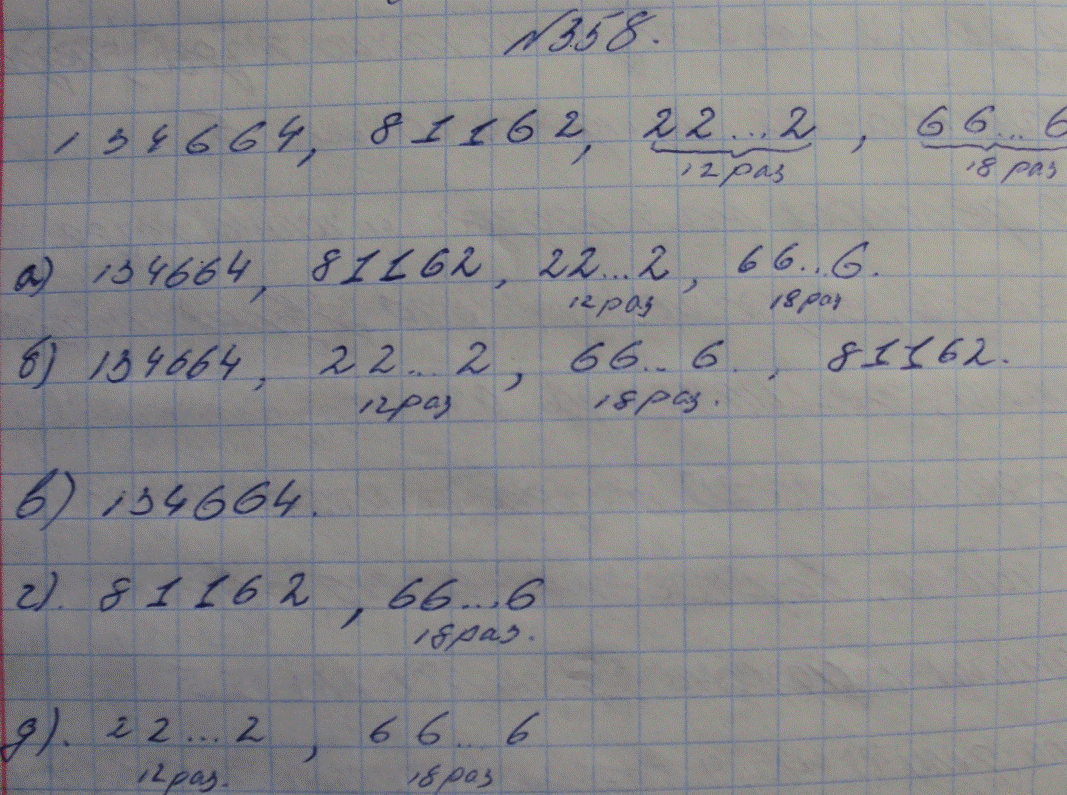 №358.
134664, 81162, 22...2, 66...6
12 раз 18 раз
а) 134664, 81162, 22...2, 66...6.
12 раз 18 раз
б) 134664, 22...2, 66...6., 81162.
12 раз 18 раз.
в) 134664.
г). 81162, 66...6
18 раз.
д). 22...2, 66...6
12 раз. 18 раз